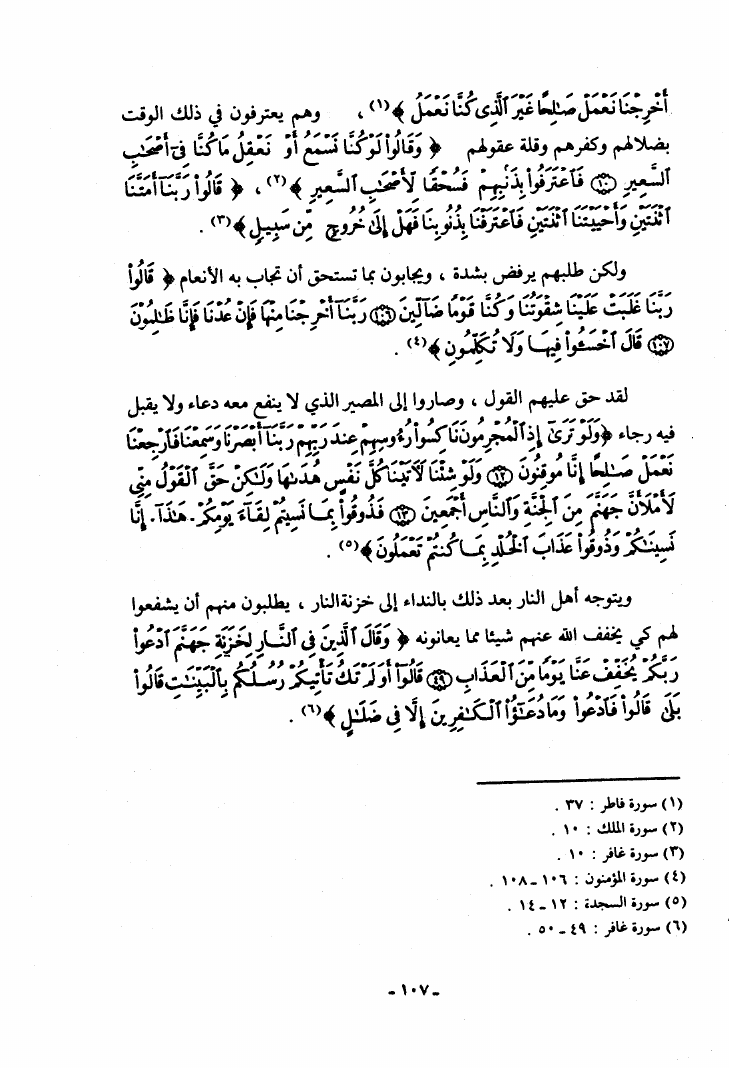 أَخْرِجْنَا نَعْمَلْ صَٰلِحًا غَيْرَ ٱلَّذِى كُنَّا نَعْمَلُ ﴾(١) ، وهم يعترفون في ذلك الوقت
بضلالهم وكفرهم وقلة عقولهم ﴿ وَقَالُوا۟ لَوْ كُنَّا نَسْمَعُ أَوْ نَعْقِلُ مَا كُنَّا فِىٓ أَصْحَٰبِ
ٱلسَّعِيرِ ۝١٠ فَٱعْتَرَفُوا۟ بِذَنۢبِهِمْ فَسُحْقًا لِّأَصْحَٰبِ ٱلسَّعِيرِ ﴾(٢) ، ﴿ قَالُوا۟ رَبَّنَآ أَمَتَّنَا
ٱثْنَتَيْنِ وَأَحْيَيْتَنَا ٱثْنَتَيْنِ فَٱعْتَرَفْنَا بِذُنُوبِنَا فَهَلْ إِلَىٰ خُرُوجٍ مِّن سَبِيلٍ ﴾(٣) .
ولكن طلبهم يرفض بشدة ، ويجابون بما تستحق أن تجاب به الأنعام ﴿ قَالُوا۟
رَبَّنَا غَلَبَتْ عَلَيْنَا شِقْوَتُنَا وَكُنَّا قَوْمًا ضَآلِّينَ ۝١٠٦ رَبَّنَآ أَخْرِجْنَا مِنْهَا فَإِنْ عُدْنَا فَإِنَّا ظَٰلِمُونَ
۝١٠٧ قَالَ ٱخْسَـُٔوا۟ فِيهَا وَلَا تُكَلِّمُونِ ﴾(٤) .
لقد حق عليهم القول ، وصاروا إلى المصير الذي لا ينفع معه دعاء ولا يقبل
فيه رجاء ﴿وَلَوْ تَرَىٰٓ إِذِ ٱلْمُجْرِمُونَ نَاكِسُوا۟ رُءُوسِهِمْ عِندَ رَبِّهِمْ رَبَّنَآ أَبْصَرْنَا وَسَمِعْنَا فَٱرْجِعْنَا
نَعْمَلْ صَٰلِحًا إِنَّا مُوقِنُونَ ۝١٢ وَلَوْ شِئْنَا لَءَاتَيْنَا كُلَّ نَفْسٍ هُدَىٰهَا وَلَٰكِنْ حَقَّ ٱلْقَوْلُ مِنِّى
لَأَمْلَأَنَّ جَهَنَّمَ مِنَ ٱلْجِنَّةِ وَٱلنَّاسِ أَجْمَعِينَ ۝١٣ فَذُوقُوا۟ بِمَا نَسِيتُمْ لِقَآءَ يَوْمِكُمْ هَٰذَآ إِنَّا
نَسِينَٰكُمْ وَذُوقُوا۟ عَذَابَ ٱلْخُلْدِ بِمَا كُنتُمْ تَعْمَلُونَ ﴾(٥) .
ويتوجه أهل النار بعد ذلك بالنداء إلى خزنة النار ، يطلبون منهم أن يشفعوا
لهم كي يخفف الله عنهم شيئا مما يعانونه ﴿ وَقَالَ ٱلَّذِينَ فِى ٱلنَّارِ لِخَزَنَةِ جَهَنَّمَ ٱدْعُوا۟
رَبَّكُمْ يُخَفِّفْ عَنَّا يَوْمًا مِّنَ ٱلْعَذَابِ ۝٤٩ قَالُوٓا۟ أَوَلَمْ تَكُ تَأْتِيكُمْ رُسُلُكُم بِٱلْبَيِّنَٰتِ قَالُوا۟
بَلَىٰ قَالُوا۟ فَٱدْعُوا۟ وَمَا دُعَٰٓؤُا۟ ٱلْكَٰفِرِينَ إِلَّا فِى ضَلَٰلٍ ﴾(٦) .
(١) سورة فاطر : ٣٧ .
(٢) سورة الملك : ١٠ .
(٣) سورة غافر : ١٠ .
(٤) سورة المؤمنون : ١٠٦ ـ ١٠٨ .
(٥) سورة السجدة : ١٢ ـ ١٤ .
(٦) سورة غافر : ٤٩ ـ ٥٠ .
ـ ١٠٧ ـ